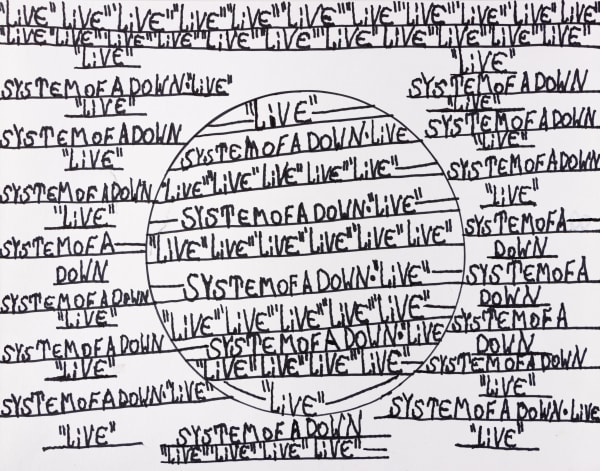 "LiVE" "LiVE" "LiVE" "LiVE" "LiVE" "LiVE" "LiVE" "LiVE" "LiVE" "LiVE" "LiVE" "LiVE"
"LiVE" "LiVE" "LiVE" "LiVE" "LiVE" "LiVE" "LiVE" "LiVE" "LiVE" "LiVE" "LiVE" "LiVE"
"LiVE"
SYSTEMOFADOWN·"LiVE"
"LiVE"
SYSTEMOFADOWN
"LiVE"
SYSTEMOFADOWN
"LiVE"
SYSTEMOFA
DOWN
SYSTEMOFADOWN
"LiVE"
SYSTEMOFADOWN
"LiVE"
SYSTEMOFADOWN·"LiVE"
"LiVE"
"LiVE"
SYSTEMOFADOWN·LiVE
"LiVE" "LiVE" "LiVE" "LiVE" "LiVE"
SYSTEMOFADOWN·"LiVE"
"LiVE" "LiVE" "LiVE" "LiVE" "LiVE" "LiVE"
SYSTEMOFADOWN·"LiVE"
"LiVE" "LiVE" "LiVE" "LiVE" "LiVE"
SYSTEMOFADOWN·"LiVE
"LiVE" "LiVE" "LiVE" "LiVE"
"LiVE"
SYSTEMOFADOWN
"LiVE" "LiVE" "LiVE" "LiVE"
"LiVE"
SYSTEMOFADOWN
"LiVE"
SYSTEMOFADOWN
"LiVE"
SYSTEMOFADOWN
"LiVE"
SYSTEMOFA
DOWN
SYSTEMOFA
DOWN
SYSTEMOFA
DOWN
SYSTEMOFADOWN
"LiVE"
SYSTEMOFADOWN·LiVE
"LiVE"